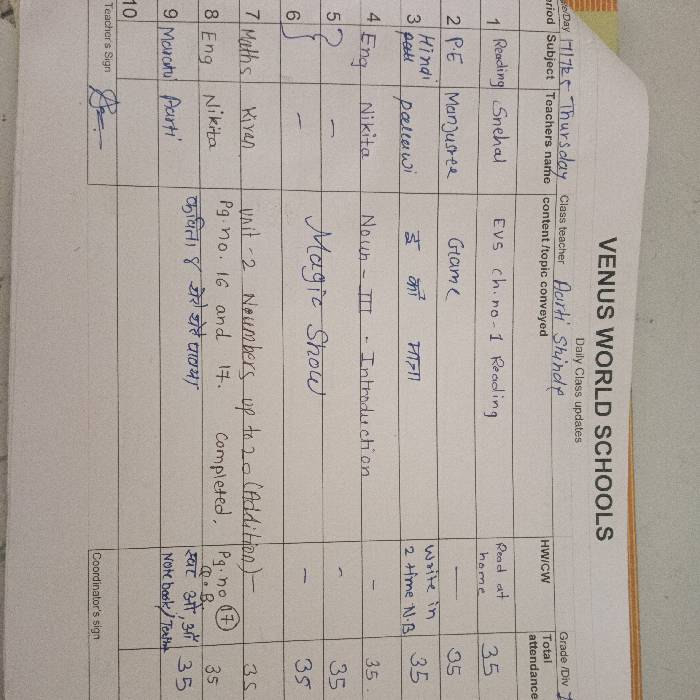 VENUS WORLD SCHOOLS
Daily Class updates
Thursday Class teacher Aarti Shinde Grade /Div
Subject Teachers name content/topic conveyed HW/CW Total attendance
1 Reading Snehal EVS ch.no-1 Reading Read at home 35
2 P.E Manjusree Game — 35
3 Hindi pallawi Write in 2 time N.B 35
4 Eng Nikita Noun - III - Introduction - 35.
5 } - Magic Show - 35
6 - - 35
7 Maths Kiran Unit-2 Noumbers up to 20 (Addition) — 35
8 Eng Nikita Pg.no. 16 and 17. completed. Pg.no 17 Q.B 35
9 Marathi Aarti कविता Notebook 35
10
Teacher's Sign Coordinator's sign